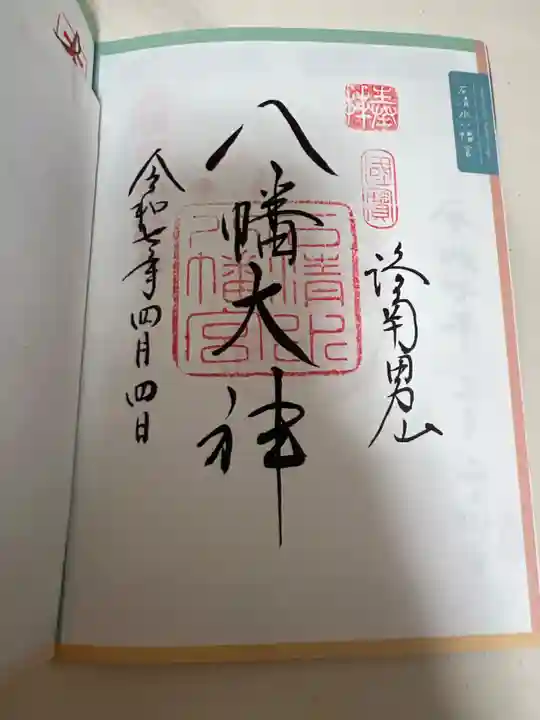 石清水八幡宮
奉拝
國寶
洛南男山
八幡大神
石清水
八幡宮
令和七年四月四日